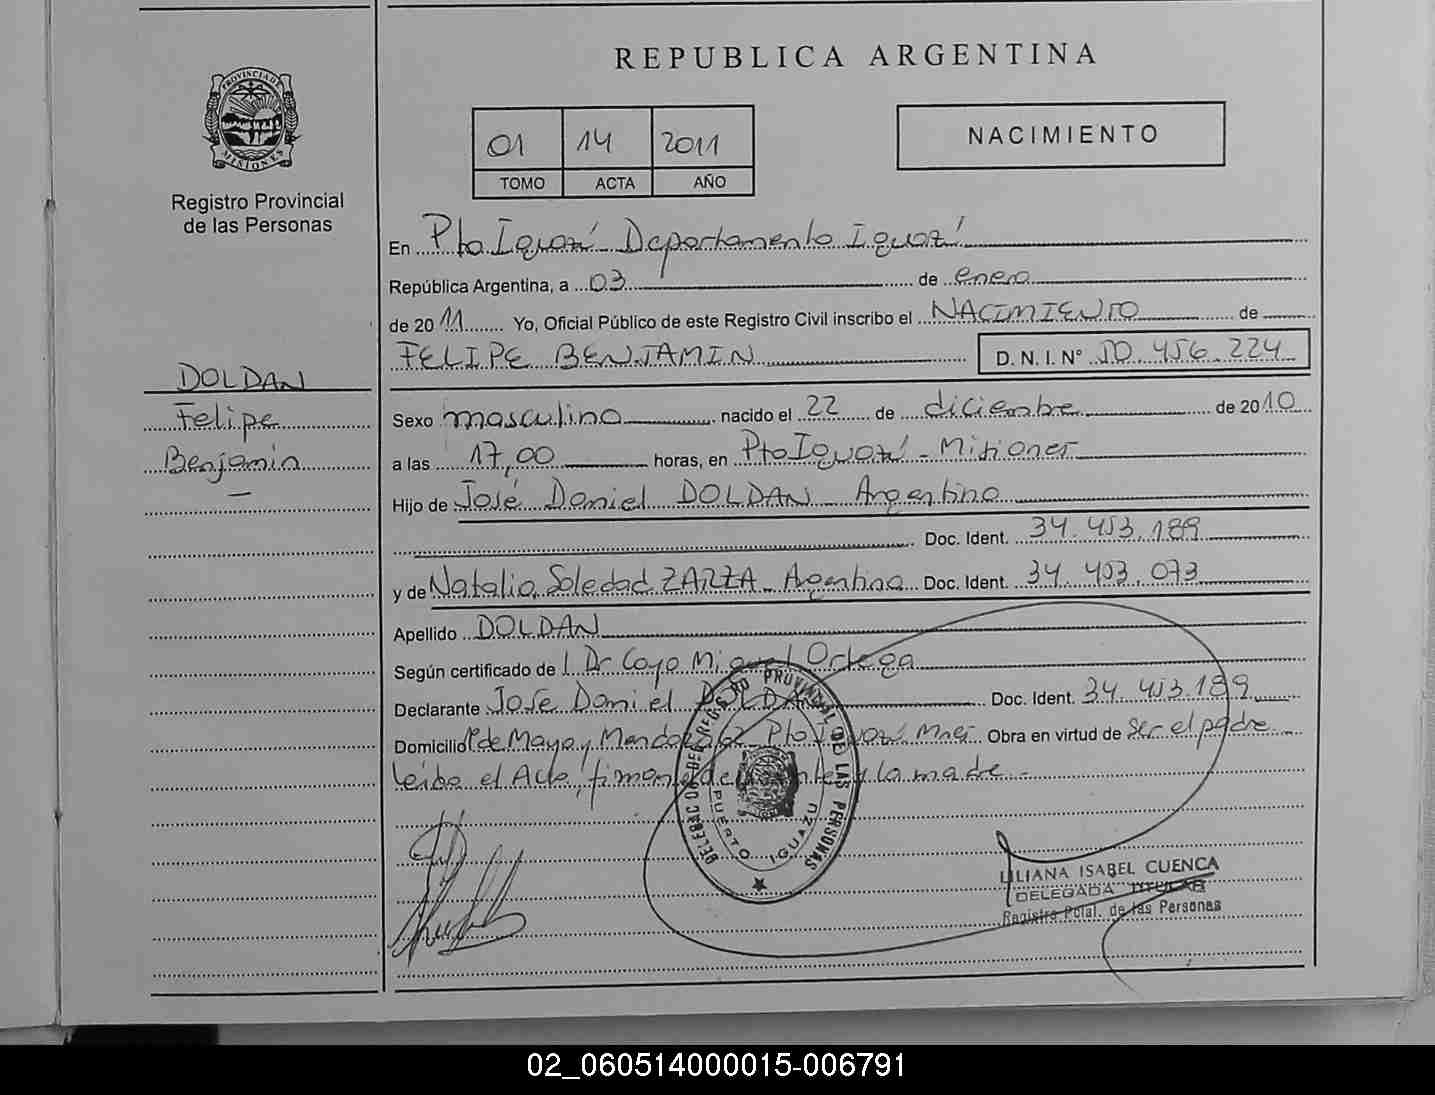 REPUBLICA ARGENTINA
PROVINCIA DE
MISIONES
Registro Provincial
de las Personas
01 14 2011
TOMO ACTA AÑO
NACIMIENTO
En Pto Iguazú Departamento Iguazú
República Argentina, a 03 de enero
de 2011 Yo, Oficial Público de este Registro Civil inscribo el NACIMIENTO de
FELIPE BENJAMIN D. N. I. N° 50.456.224
DOLDAN
Felipe
Benjamín
Sexo masculino nacido el 22 de diciembre de 2010
a las 17,00 horas, en Pto Iguazú - Misiones
Hijo de José Daniel DOLDAN - Argentino
Doc. Ident. 34.453.189
y de Natalia Soledad ZARZA - Argentina Doc. Ident. 34.453.073
Apellido DOLDAN
Según certificado de Dr Cayo Miguel Ortega
Declarante José Daniel DOLDAN Doc. Ident. 34.453.189
Domicilio 1º de Mayo y Mendoza Pto Iguazú Mnes Obra en virtud de ser el padre
Leída el Acta, firman y la madre -
DELEGACION DEL REGISTRO PROVINCIAL DE LAS PERSONAS
PUERTO IGUAZU
LILIANA ISABEL CUENCA
DELEGADA TITULAR
Registro Pcial. de las Personas
02_060514000015-006791